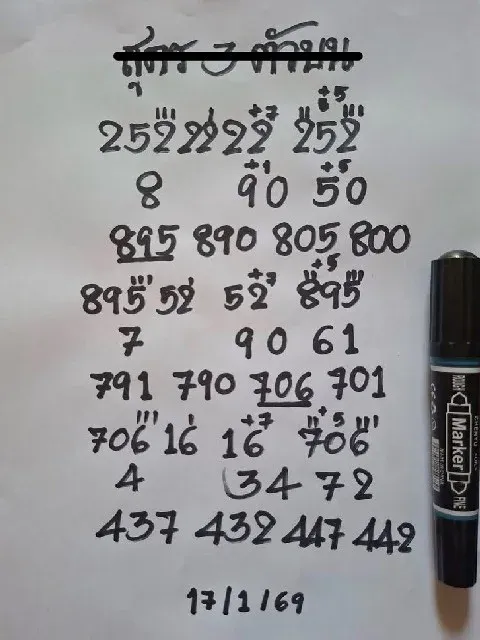 สูตร 3 ตัวบน
+7 +5
252 22 22 252
+1 +5
8 90 50
895 890 805 800
+7 +5
895 52 52 895
7 90 61
791 790 706 701
+7 +5
706 16 16 706
4 34 72
437 432 447 442
17/1/69
Marker
FINE